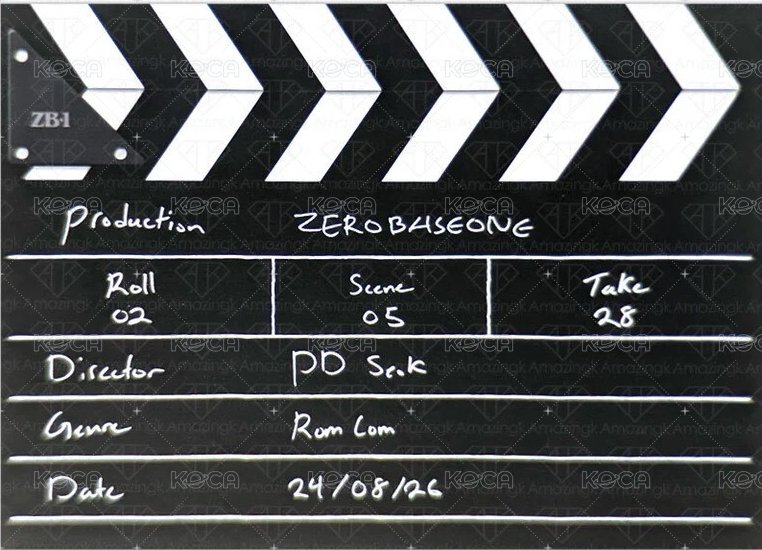 ZB1
Production ZEROBASEONE
Roll Scene Take
02 05 28
Director PD Seok
Genre Rom Com
Date 24/08/26
KOCA
Amazingk